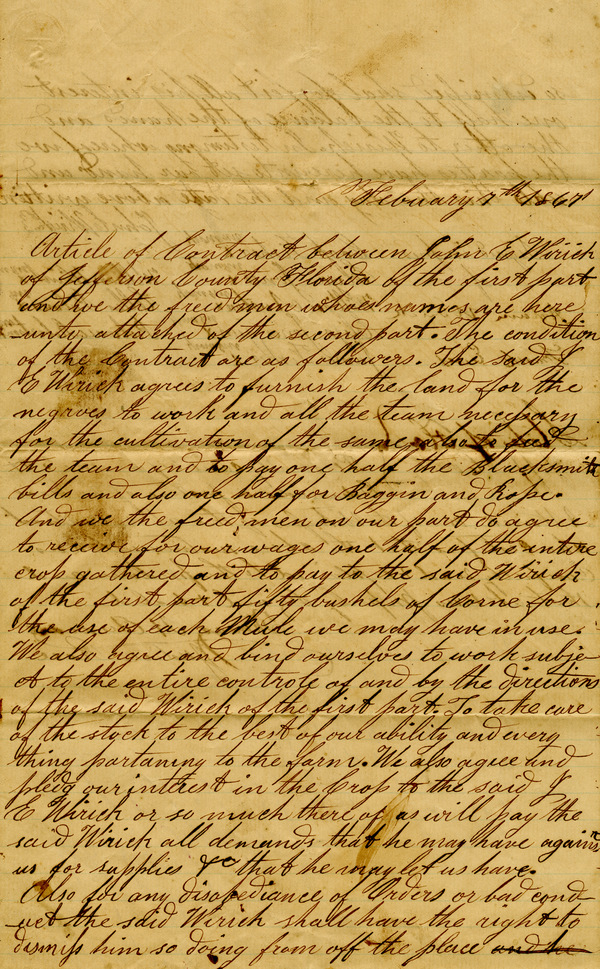 Febuary 7th 1867
Article of Contract between John E Wirick
of Jefferson County Florida of the first part
and we the freed men whoes names are here
unto attached of the second part. The condition
of the Contract are as followers. The said J
E Wirick agrees to furnish the land for the
negroes to work and all the team necessary
for the cultivation of the same also to feed
the team and to pay one half the Blacksmith
bills and also one half for Baggin and Rope.
And we the freed men on our part do agree
to receive for our wages one half of the intire
crop gathered and to pay to the said Wirick
of the first part fifty bushels of Corne for
the use of each Mule we may have in use.
We also agree and bind ourselves to work subje-
ct to the entire controle of and by the directions
of the said Wirick of the first part. To take care
of the stock to the best of our ability and every
thing partaning to the farm. We also agree and
pledg our interest in the Crop to the said J
E Wirick or so much there of as will pay the
said Wirick all demands that he may have against
us for supplies &c that he may let us have.
Also for any disobediance of Orders or bad cond-
uct the said Wirick shall have the right to
dismiss him so doing from off the place and he